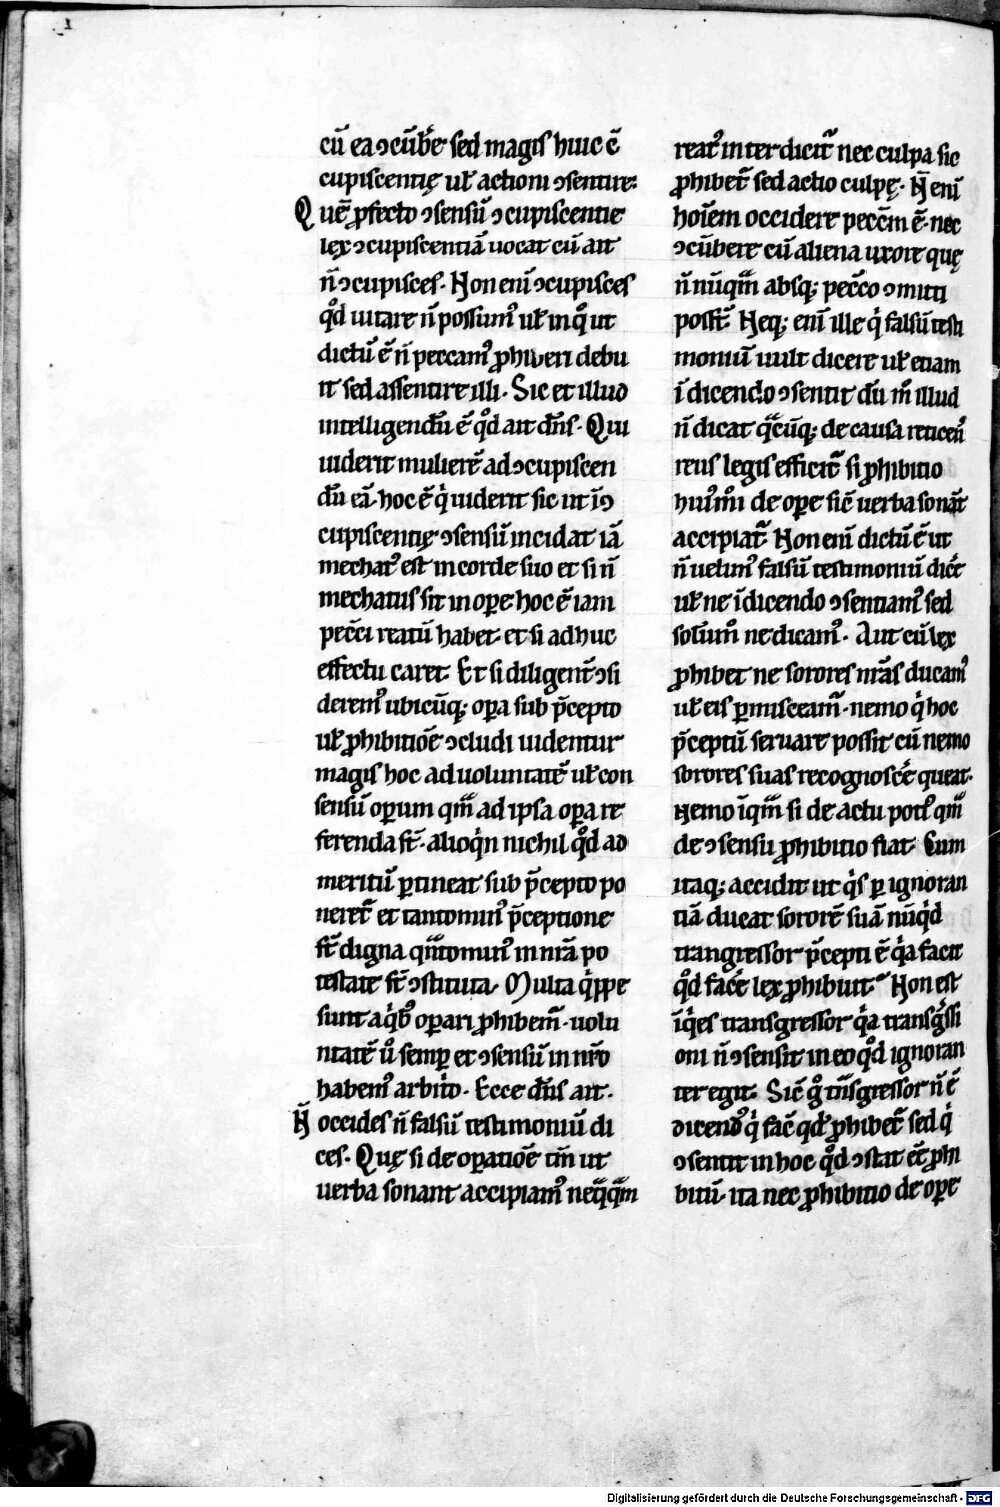 cū ea ɔcūb̄e sed magis huic ē
cupiscentię ul̄ actioni ɔsentire.
Quē ꝓfecto ɔsensū ɔcupiscentie
lex ɔcupiscentiā uocat cū ait
n̄ ɔcupisces. Non enī ɔcupisces
qͦd uitare n̄ possumꝰ ul̄ in qͦ ut
dictū ē n̄ peccamꝰ ꝓhiberi debu
it sed assentire illi. Sic et illud
intelligendū ē qͦd ait dn̄s. Qui
uiderit mulierē ad ɔcupiscen
dū eā. hoc ē qͥ uiderit sic ut ī ɔ
cupiscentię ɔsensū incidat iā
mechatꝰ est in corde suo et si n̄
mechatus sit in oꝑe hoc ē iam
pecc̄i reatū habet. et si adhuc
effectu caret. Et si diligent̄ ɔsi
deremꝰ ubicūqꝫ oꝑa sub p̄cepto
ul̄ ꝓhibitiōe ɔcludi uidentur
magis hoc ad uoluntatē ul̄ con
sensū oꝑum qᵃm ad ipsa oꝑa re
ferenda st̄. alioqͥn nichil qͦd ad
meritū ꝑtineat sub p̄cepto po
neret̄ et tantominꝰ p̄ceptione
st̄ digna qᵃntominꝰ in nr̄a po
testate st̄ ɔstituta. Multa qͥppe
sunt a qͥbꝰ oꝑari ꝓhibem̄. uolu
ntatē uͦ semꝑ et ɔsensū in nr̄o
habemꝰ arbitͥo. Ecce dn̄s ait.
N̄ occides n̄ falsū testimoniū di
ces. Quę si de oꝑatiōe tm̄ ut
uerba sonant accipiamꝰ neqᵃqᵃm
reatꝰ interdicit̄ nec culpa sic
ꝓhibet̄ sed actio culpę. N̄ enī
hoīem occidere pecc̄m ē. nec
ɔcūbere cū aliena uxore quę
n̄ nūqᵃm absqꝫ pecc̄o ɔmitti
posst̄. Neqꝫ enī ille qͥ falsū testi
moniū uult dicere ul̄ etiam
ī dicendo ɔsentit dū m̄ illud
n̄ dicat qᵃcūqꝫ de causa reticen̄
reus legis efficit̄ si ꝓhibitio
huiꝰmͦi de oꝑe sic̄ uerba sonāt
accipiat̄. Non enī dictū ē ut
n̄ uelimꝰ falsū testimoniū dic̄e
ul̄ ne ī dicendo ɔsentiamꝰ sed
solummͦ ne dicamꝰ. Aut cū lex
ꝓhibet ne sorores nr̄as ducamꝰ
ul̄ eis ꝑmisceam̄. nemo qͥ hoc
p̄ceptū seruare possit cū nemo
sorores suas recognosc̄e queat.
Nemo īqᵃm si de actu potiꝰ qᵃm
de ɔsensu ꝓhibitio fiat. Cum
itaqꝫ accidit ut qͥs ꝑ ignoran
tiā ducat sororē suā nūqͥd
trangressor p̄cepti ē qͥa facit
qͦd fac̄e lex ꝓhibuit. Non est
īqͥes transgressor qͥa transgͥssi
oni n̄ ɔsensit in eo qͦd ignoran
ter egit. Sic̄ gͦ tn̄sgressor n̄ ē
dicendꝰ qͥ fac̄ qd̄ ꝓhibet̄ sed qͥ
ɔsentit in hoc qͦd ɔstat eē ꝓhi
bitū. ita nec ꝓhibitio de oꝑe
Digitalisierung gefördert durch die Deutsche Forschungsgemeinschaft - DFG